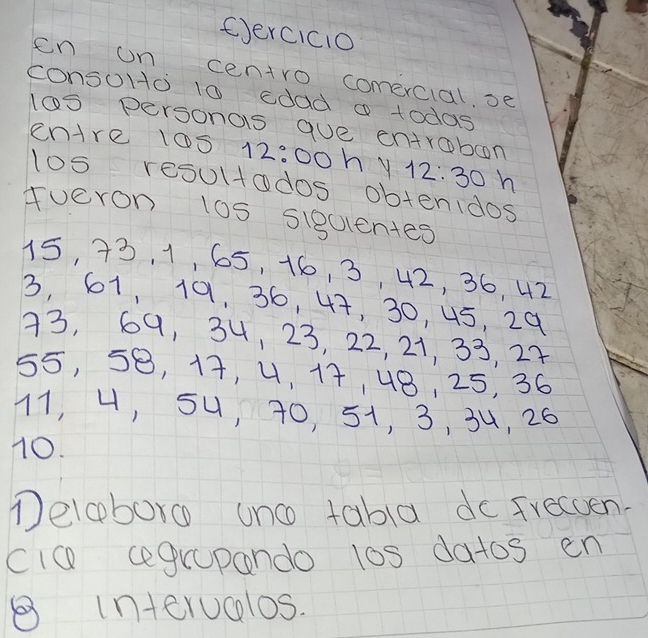 Ejercicio
en un centro comercial. se
consultó la edad a todas
las personas que entraban
entre las 12:00 h y 12:30 h
los resultados obtenidos
fueron los siguientes
15, 73, 1, 65, 16, 3, 42, 36, 42
3, 61, 19, 36, 47, 30, 45, 29
73, 69, 34, 23, 22, 21, 33, 27
55, 58, 17, 4, 17, 48, 25, 36
11, 4, 54, 70, 51, 3, 34, 26
10.
1) elabora una tabla de frecuen-
cia agrupando los datos en
8 intervalos.